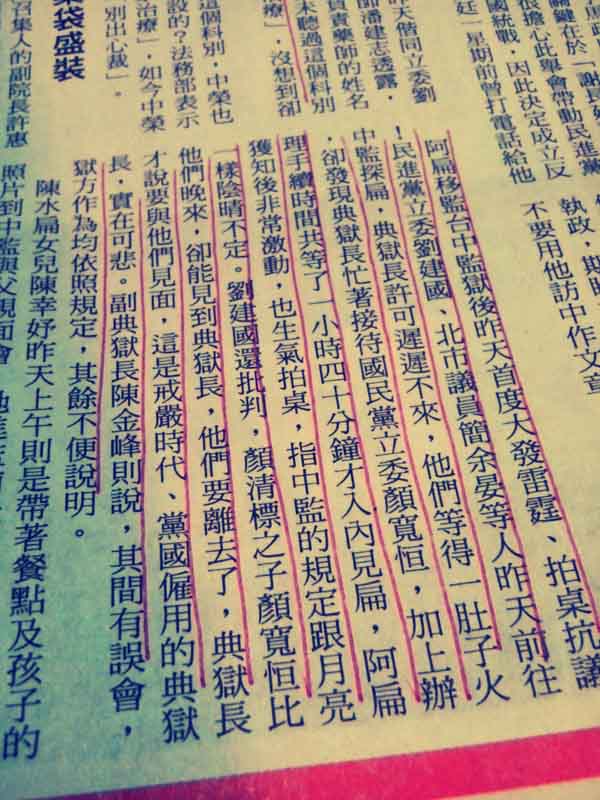 關鍵在於「謝長
很擔心此舉會帶動民進黨
國統戰，因此決定成立反
廷一星期前曾打電話給他
執政，期
不要用他訪中作文章
昨天偕同立委劉
師潘建志透露，
負責藥師的姓名
未聽過這個科別
療」，沒想到卻
這個科別，中榮也
設的？法務部表示
治療」，如今中榮
別出心裁」。
袋盛裝
召集人的副院長許惠
阿扁移監台中監獄後昨天首度大發雷霆、拍桌抗議
！民進黨立委劉建國、北市議員簡余晏等人昨天前往
中監探扁，典獄長許可遲遲不來，他們等得一肚子火
，卻發現典獄長忙著接待國民黨立委顏寬恒，加上辦
理手續時間共等了一小時四十分鐘才入內見扁，阿扁
獲知後非常激動，也生氣拍桌，指中監的規定跟月亮
一樣陰晴不定。劉建國還批判，顏清標之子顏寬恒比
他們晚來，卻能見到典獄長，他們要離去了，典獄長
才說要與他們見面，這是戒嚴時代、黨國僱用的典獄
長，實在可悲。副典獄長陳金峰則說，其間有誤會，
獄方作為均依照規定，其餘不便說明。
陳水扁女兒陳幸妤昨天上午則是帶著餐點及孩子的
照片到中監與父親面會